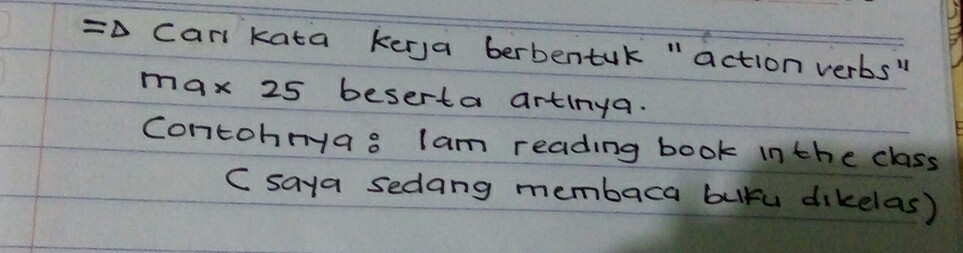 => Cari kata kerja berbentuk "action verbs"
max 25 beserta artinya.
Contohnya : I am reading book in the class
( saya sedang membaca buku dikelas)